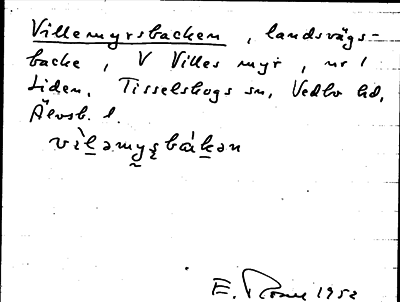 Villemyrsbacken, landsvägs-
backe, V Villes myr, nr 1
Liden, Tisselskogs sn, Vedbo hd,
Älvsb. l.
vìl̲əmy̰ʂbàk̲ən
E. 1952